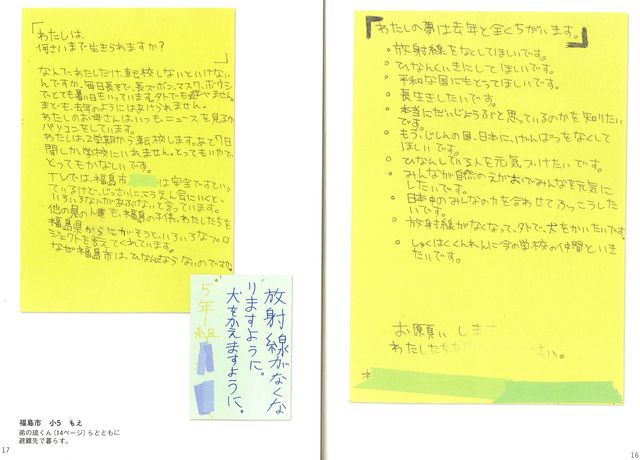 「わたしの夢は去年と全くちがいます。」
・放射線をなくしてほしいです。
・ひなんくいきにしてほしいです。
・平和な国にもどってほしいです。
・長生きしたいです。
・本当にだいじょうぶだと思っているのかを知りたい
です。
・もう、じしんの国、日本に、げんぱつをなくして
ほしいです。
・ひなんしている人を元気づけたいです。
・みんなが自然のえがおでみんなを元気に
したいです。
・日本中のみんなの力を合わせてふっこうした
いです。
・放射線がなくなって、外で、犬をかいたいです。
・しゅくはくくんれんに今の学校の仲間といき
たいです。
お願いします
わたしたちが
さい。
16
「わたしは、
何さいまで生きられますか?」
なんで、わたしだけ、転校しないといけない
んですか。毎日長そで、長ズボン、マスク、ボウシ
でとても暑い日もいっています。外でも遊べません。
まども、去年のようにはあけられません。
わたしのお母さんは、いっも、ニュースを見るか
パソコンをしています。
わたしは、2学期から転校します。あと7日
間しか学校にいれません。とってもいやで、
とってもかなしいです。
TVでは、福島市は安全ですといっ
ているけど、じっさいにこうえん会にいくと、
いろいろな人があぶないと言っています。
他の県の人達も、福島の子供、わたしたちを
福島県からにがそうと、いろいろなプロ
ジェクトを考えてくれています。
なぜ福島市は、ひなんにならないのですか。
放射線がなくな
りますように。
犬をかえますように。
5年1組
福島市 小5 もえ
弟の琉くん(14ページ)らとともに
避難先で暮らす。
17